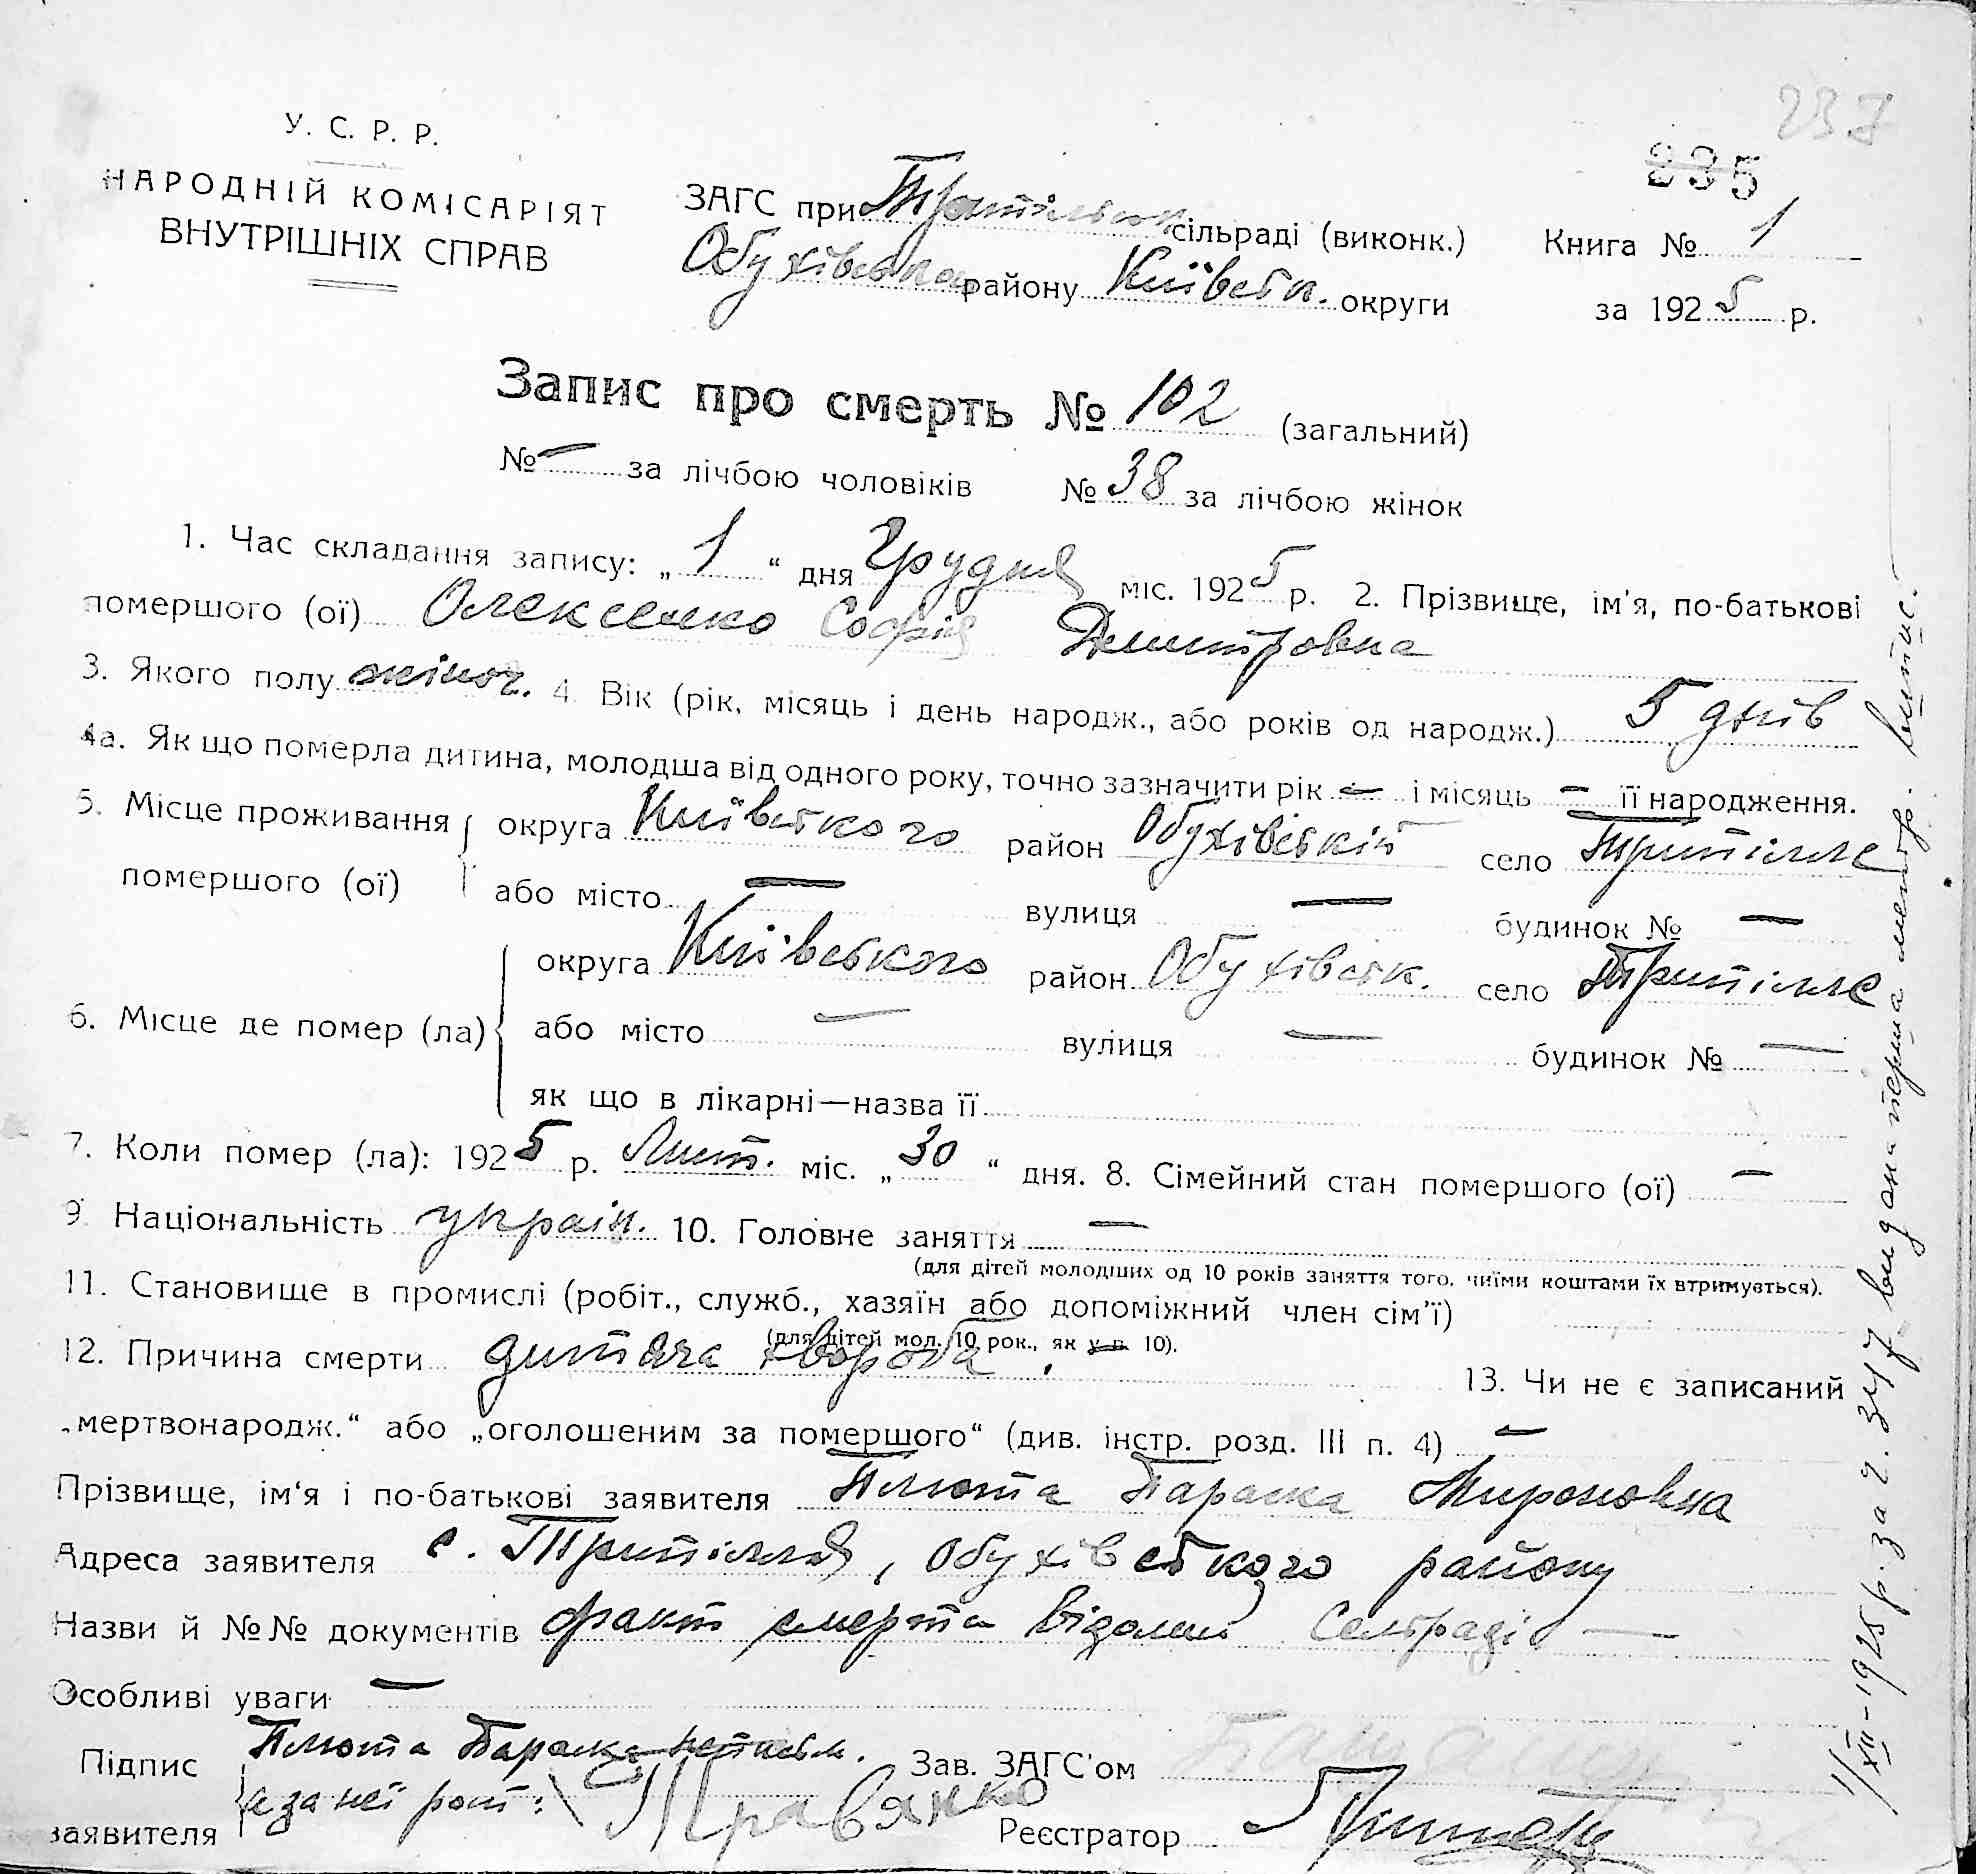 237
235
У. С. Р. Р.
НАРОДНІЙ КОМІСАРІЯТ
ВНУТРІШНІХ СПРАВ
ЗАГС при Трипільськ. сільраді (виконк.) Книга № 1
Обухівська району Київськ. округи за 1925 р.
Запис про смерть № 102 (загальний)
№ — за лічбою чоловіків № 38 за лічбою жінок
1. Час складання запису: „ 1 “ дня Грудня міс. 1925 р. 2. Прізвище, ім'я, по-батькові
помершого (ої) Олексенко Софія Дмитровна
3. Якого полу жіноч. 4. Вік (рік, місяць і день народж., або років од народж.) 5 днів
4а. Як що померла дитина, молодша від одного року, точно зазначити рік — і місяць — її народження.
5. Місце проживання округа Київського район Обухівській село Трипілле
помершого (ої) або місто — вулиця — будинок № —
округа Київського район Обухівськ. село Трипілле
6. Місце де помер (ла) або місто — вулиця — будинок № —
як що в лікарні—назва її
7. Коли помер (ла): 1925 р. Лист. міс. „ 30 “ дня. 8. Сімейний стан помершого (ої) —
9. Національність україн. 10. Головне заняття —
(для дітей молодших од 10 років заняття того, чиїми коштами їх втримується).
11. Становище в промислі (робіт., служб., хазяїн або допоміжний член сім'ї)
(для дітей мол. 10 рок., як у п. 10).
12. Причина смерти дитяча хвороба. 13. Чи не є записаний
„мертвонародж.“ або „оголошеним за помершого“ (див. інстр. розд. III п. 4) —
Прізвище, ім‘я і по-батькові заявителя Плюта Параска Мироновна
Адреса заявителя с. Трипілля, Обухівського району
Назви й №№ документів факт смерти відомий Сельраді —
Особливі уваги —
Підпис Плюта Параска неписьм. Зав. ЗАГС'ом
а за неї розп: Правянко
заявителя Реєстратор
1/XII-1925 р. за ч. 347 видана перша метр. випис.